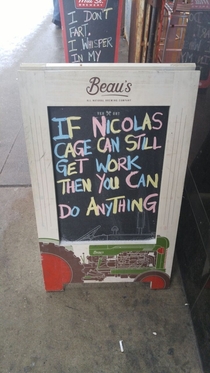 I DON'T
FART.
I WHISPER
IN MY
Beau's
ALL NATURAL BREWING COMPANY
IF NICOLAS
CAGE CAN STILL
GET WORK
THEN YOU CAN
DO ANYTHING